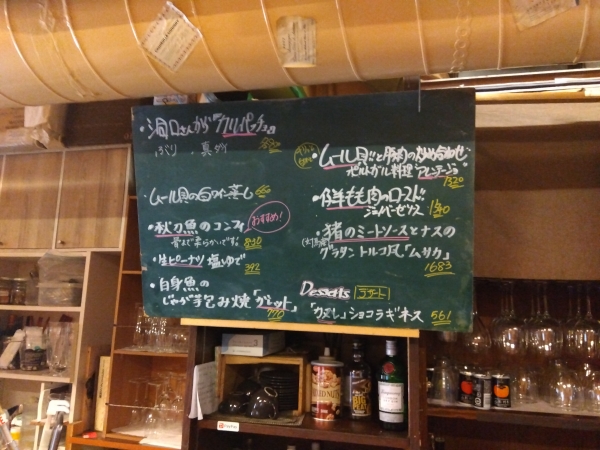 ・洞口さんが カルパッチョ
ぶり 真ダイ
・ムール貝の白ワイン蒸し 660
・秋刀魚のコンフィ おすすめ!
骨まで柔らかいです 880
・生ピーナツ 塩ゆで 392
・白身魚の
じゃが芋包み焼「カネット」 770
・ムール貝と豚肉の炒め合わせ
ポルトガル料理 アレンテージョ 1320
・仔羊もも肉のロースト
1540
・猪のミートソースとナスの
グラタン トルコ風「ムサカ」
1683
Desserts デザート
・「カヌレ」ショコラギネス 561